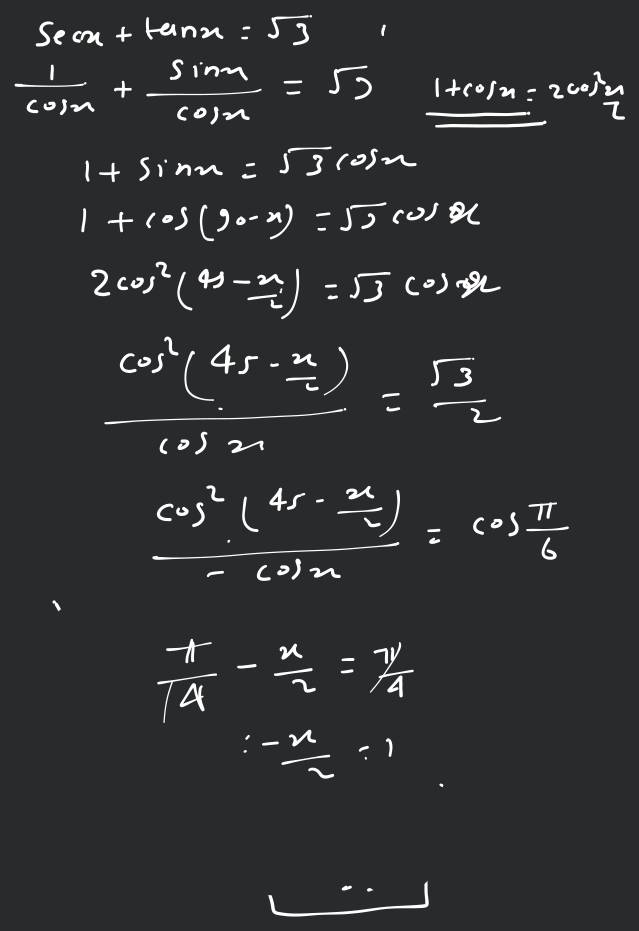 secx + tanx = √3
1/cosx + sinx/cosx = √3    1+cosx = 2cos²x/2
1 + sinx = √3 cosx
1 + cos(90-x) = √3 cos x
2cos²(45-x/2) = √3 cos x
cos²(45-x/2)/cos x = √3/2
cos²(45-x/2)/-cosx = cos π/6
π/4 - x/2 = π/4
: -x/2 = 1